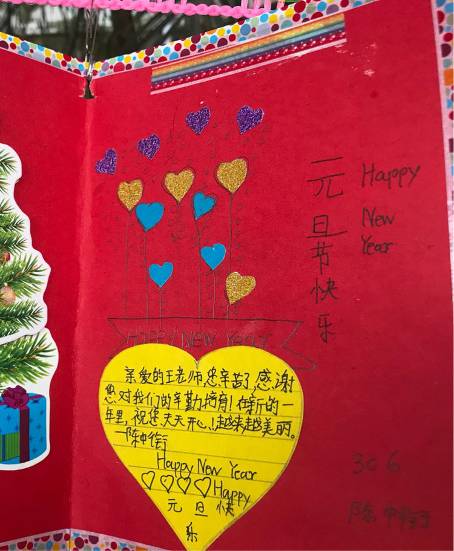 元旦节快乐
Happy
New
Year
HAPPY NEW YEAR
亲爱的王老师,您辛苦了,感谢
您对我们的辛勤培育!在新的一
年里,祝您天天开心!越来越美丽。
Happy New Year
♡♡♡♡Happy
元旦快
乐
306